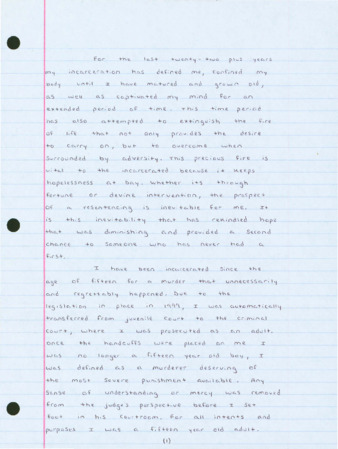 For the last twenty-two plus years
my incarceration has defined me, confined my
body until I have matured and grown old,
as well as captivated my mind for an
extended period of time. This time period
has also attempted to extinguish the fire
of life that not only provides the desire
to carry on, but to overcome when
surrounded by adversity. This precious fire is
vital to the incarcerated because it keeps
hopelessness at bay. Whether its through
fortune or devine intervention, the prospect
of a resentencing is inevitable for me. It
is this inevitability that has rekindled hope
that was diminishing and provided a second
chance to someone who has never had a
first.
I have been incarcerated since the
age of fifteen for a murder that unnecessarily
and regrettably happened. Due to the
legislation in place in 1993, I was automatically
transferred from juvenile court to the criminal
court, where I was prosecuted as an adult.
Once the handcuffs were placed on me I
was no longer a fifteen year old boy, I
was defined as a murderer deserving of
the most severe punishment available. Any
sense of understanding or mercy was removed
from the judge's perspective before I set
foot in his courtroom. For all intents and
purposes I was a fifteen year old adult.
(1)